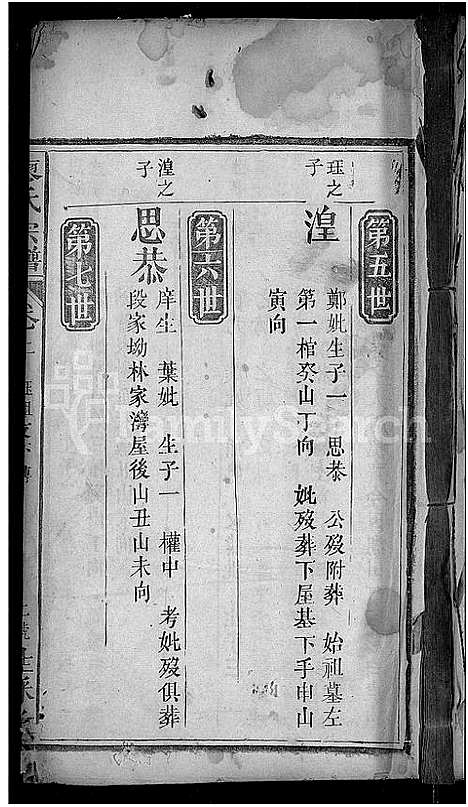 第五世
珏之子
湟
鄭妣生子一 思恭 公歿附葬 始祖墓左
第一棺癸山丁向 妣歿葬下屋基下手申山
寅向
第六世
湟之子
思恭
庠生 葉妣 生子一 權中 考妣歿俱葬
段家坳林家灣屋後山丑山未向
第七世
氏宗譜
FamilySearch